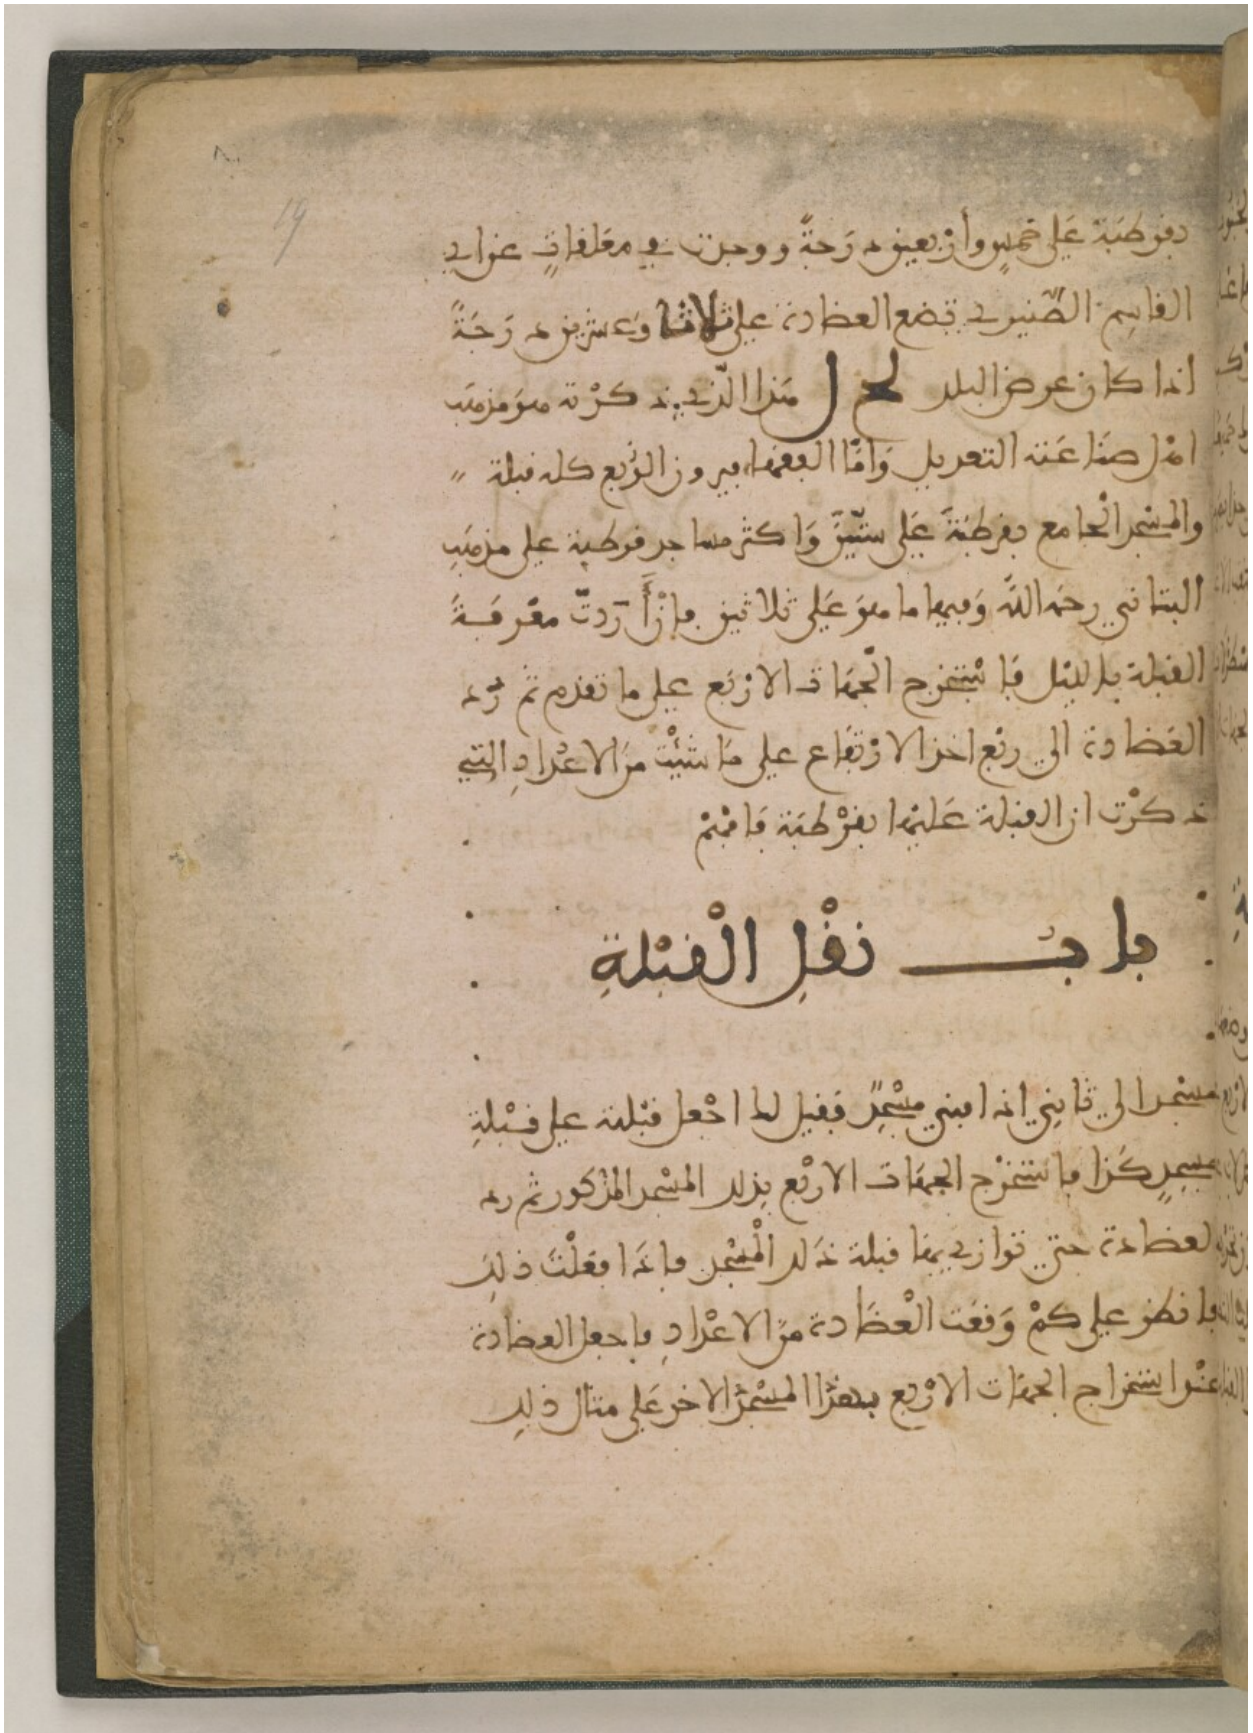 19
بقرطبة عَلى خمسٍ وأرْبعين دَرَجةً ووجدت في معَلقاتٍ عن ابي
القاسِم الطُّنيزي تضع العضادة على ثلاثا وَعشرين دَرَجَةً
اذا كان عرض البلد لح ل هَذا الّذي ذكرْته هوَ مذهَب
اهْل صنَاعَتة التعديل وَامّا الفقهَا فيرون الرُّبع كله قبلة
والمسْجد الْجامع بقرطبَة عَلى ستّينَ وَاكثر مساجد قرطبة على مذهَبِ
البتاني رحمَه اللَّه وَفيها ما هوَ عَلى ثلاثين فإنْ أَرَدتّ معْرفَةَ
القبلة بالليْل فَاسْتخرج الْجهَات الارْبَع على ما تقدم ثم رُد
العَضادة الى ربْع اخذ الارْتفَاع على مَا شئْت منَ الاعْدادِ التي
ذكرْت ان القبلة عَليْها بقرْطبَة فَافهَمْ
باب نقْلِ الْقبْلةِ
مسْجد الى ثَانِي اذا ابني مسْجدٌ فقيل لك اجْعل قبْلته على قبْلةِ
مسجدِ كَذا فاسْتخرْج الجهَات الارْبع بذلك المسْجد المَذكور ثم رد
العضادة حتى توازي بهَا قبلة ذَلك الْمسْجد فاذَا فعَلْتَ ذلك
فانظر على كمْ وَقعَت الْعضَادة منَ الاعْدادِ فاجعل العضادة
عنْد استخراج الجهَات الارْبع بهذَا المسْجد الاخر عَلى مثال ذلك